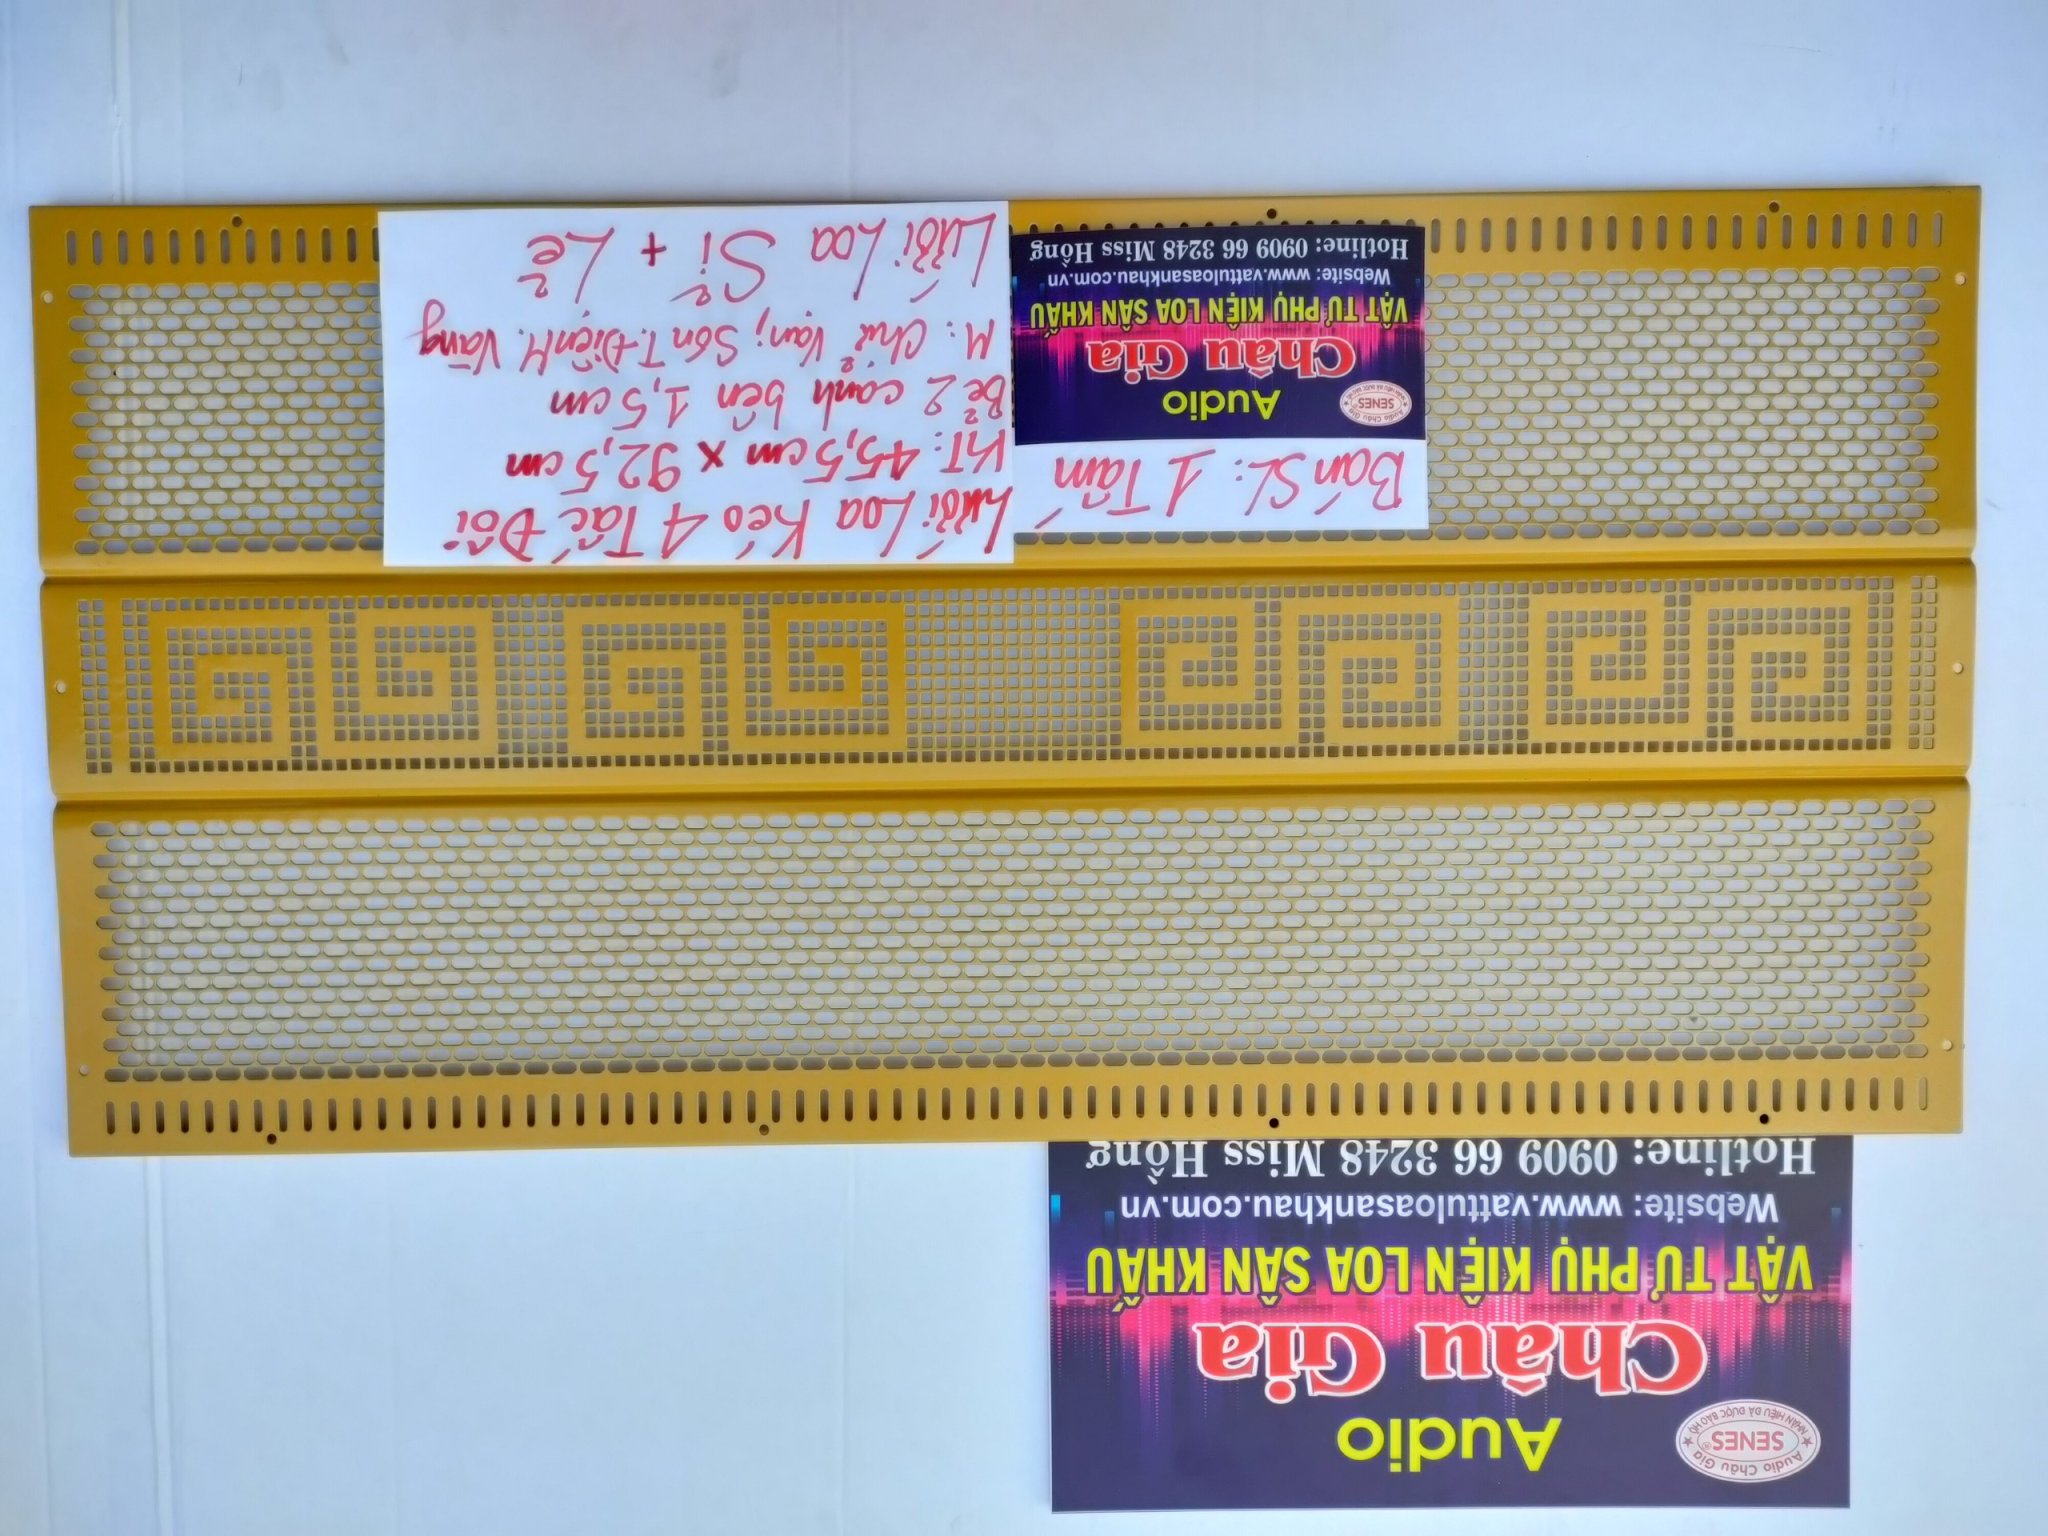 Lưới Loa Kéo 4 Tấc Đôi
KT: 45,5cm x 92,5cm
Bẻ 2 cạnh bên 1,5cm
M: Chữ Vạn; Sơn T.Điện M. Vàng
Lưới Loa Sỉ + Lẻ
Bán SL: 1 Tấm
Audio Châu Gia
SENES
NHÃN HIỆU ĐÃ ĐƯỢC BẢO HỘ
Audio
Châu Gia
VẬT TƯ PHỤ KIỆN LOA SÂN KHẤU
Website: www.vattuloasankhau.com.vn
Hotline: 0909 66 3248 Miss Hồng
Audio Châu Gia
SENES®
NHÃN HIỆU ĐÃ ĐƯỢC BẢO HỘ
Audio
Châu Gia
VẬT TƯ PHỤ KIỆN LOA SÂN KHẤU
Website: www.vattuloasankhau.com.vn
Hotline: 0909 66 3248 Miss Hồng